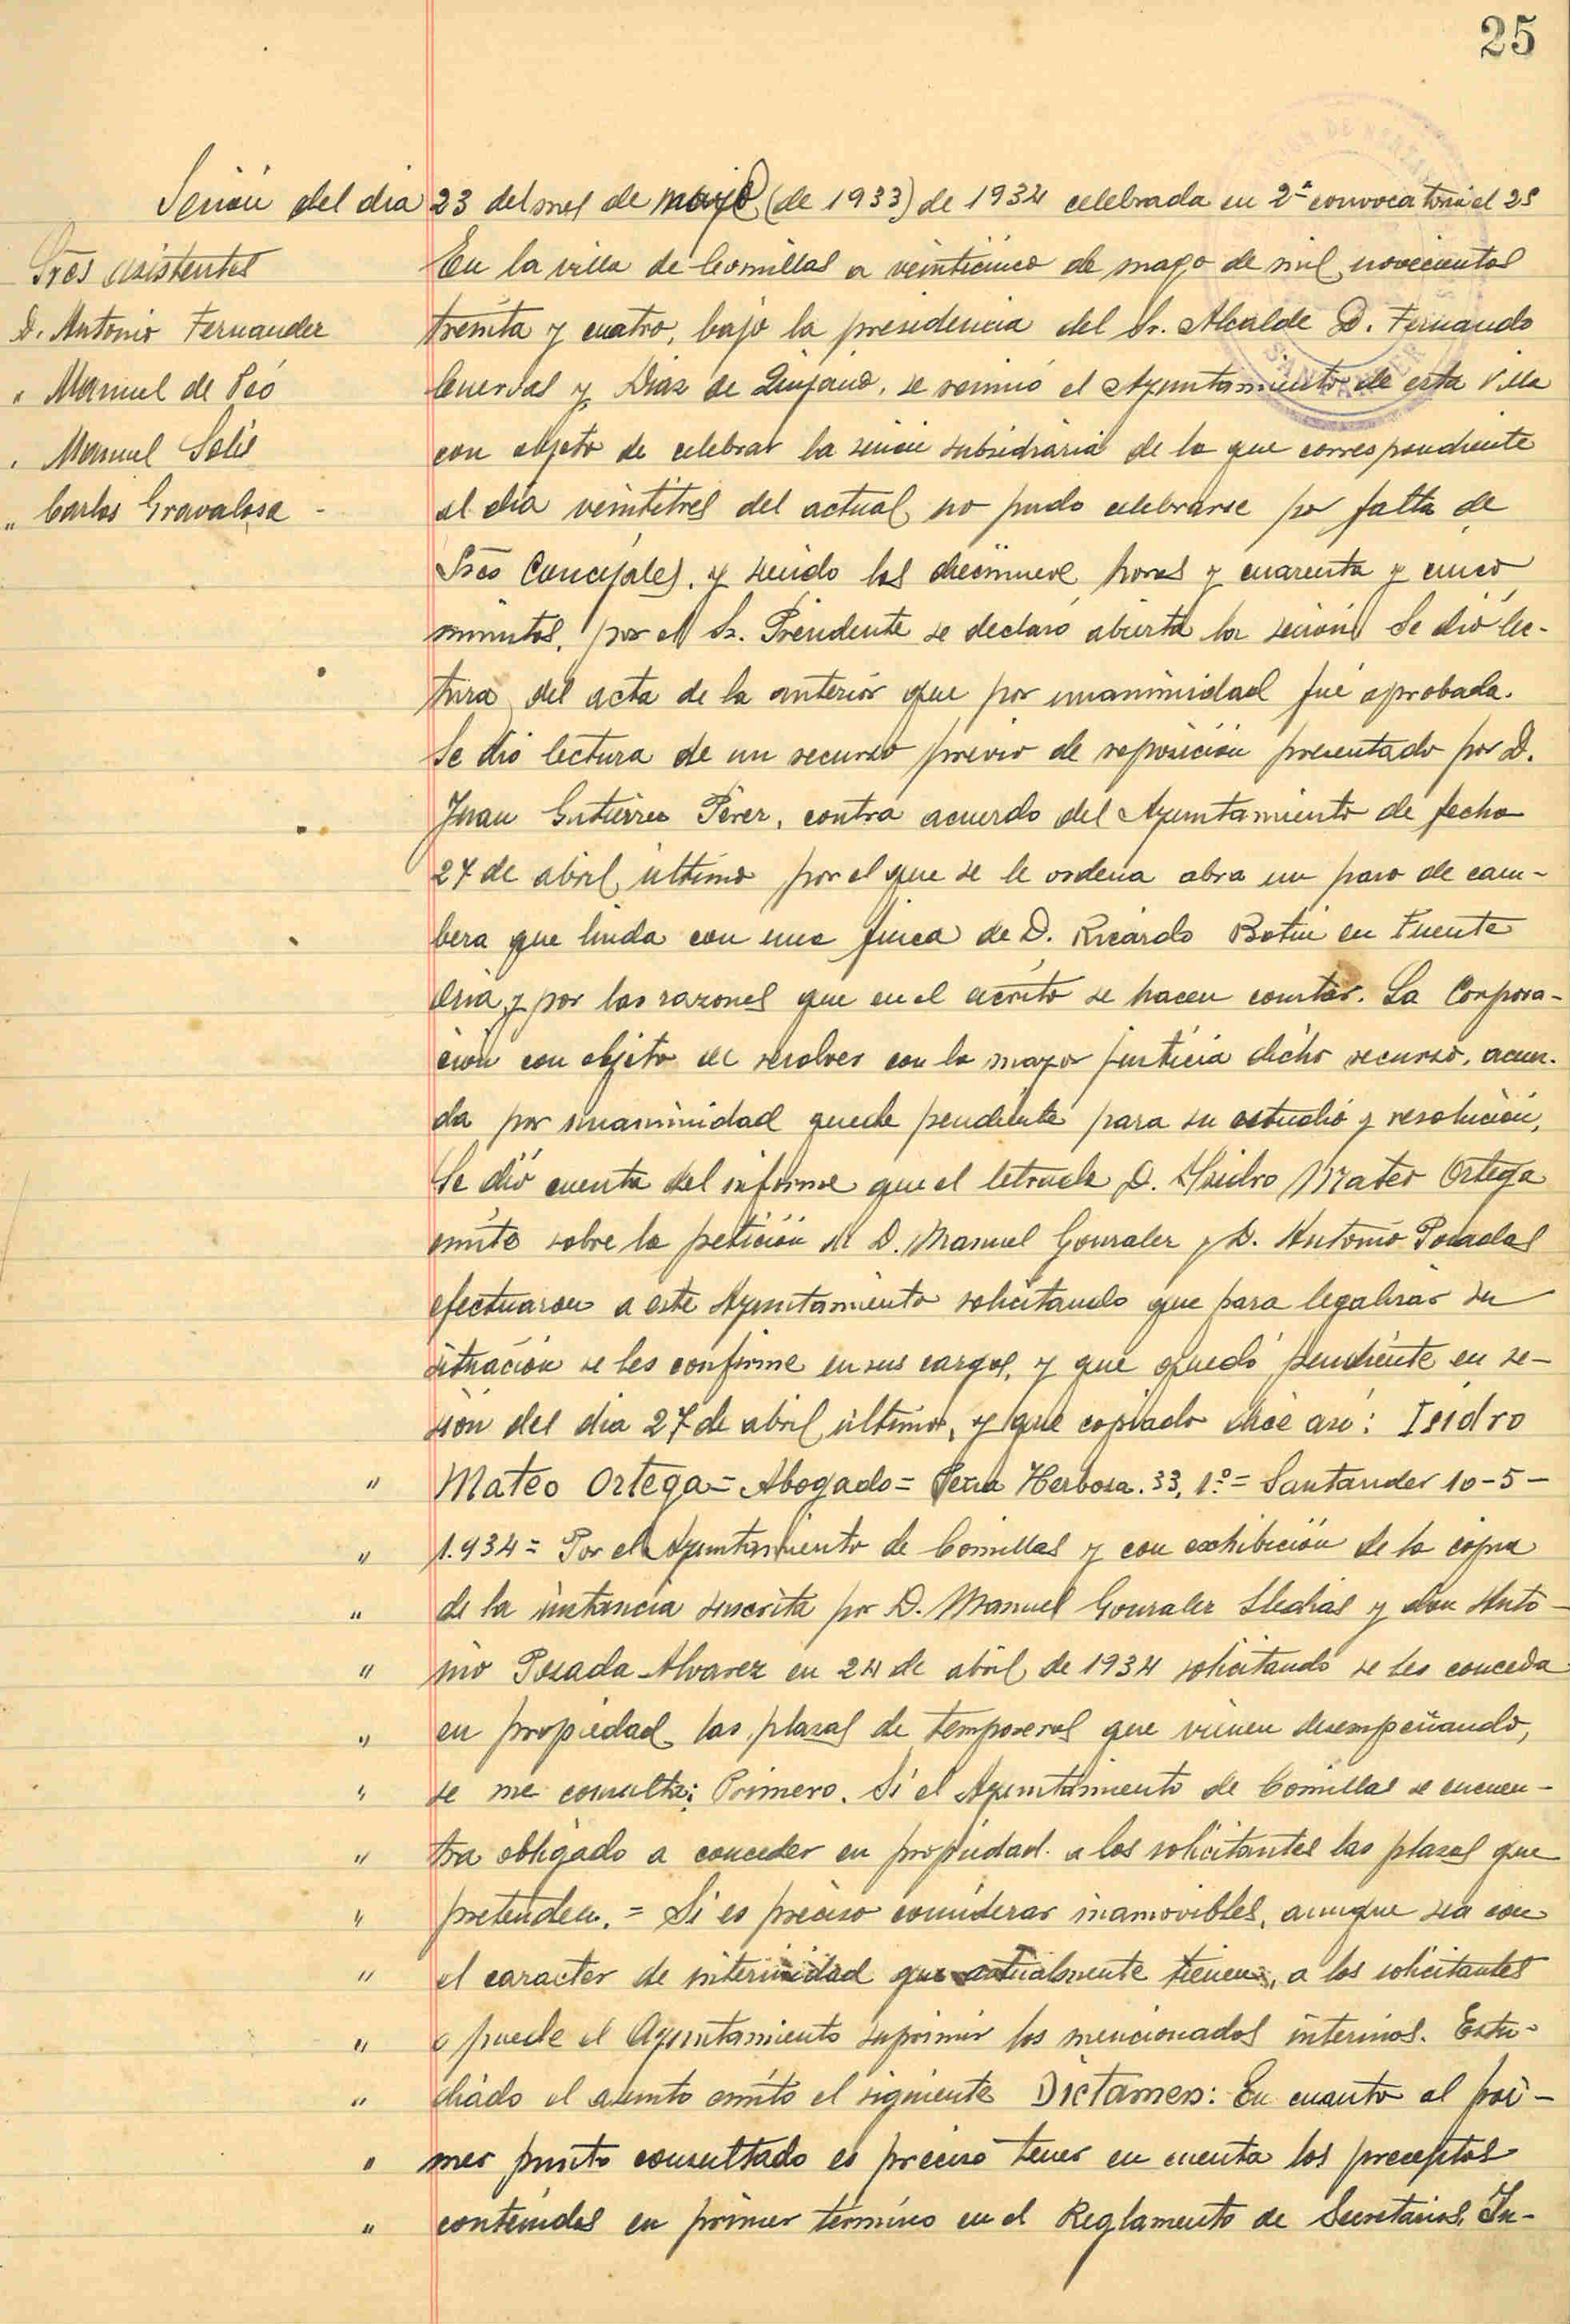 25
Sesión del dia 23 del mes de mayo (de 1933) de 1934 celebrada en 2ª convocatoria el 25
Sres asistentes
D. Antonio Fernandez
" Manuel de Peó
" Manuel Solis
" Carlos Gravalosa -
En la villa de Comillas a veinticinco de mayo de mil novecientos
treinta y cuatro, bajo la presidencia del Sr. Alcalde D. Fernando
Cuervas y Diaz de Quijano, se reunió el Ayuntamiento de esta Villa
con objeto de celebrar la sesión subsidiaria de la que correspondiente
al día veintitres del actual no pudo celebrarse por falta de
Sres Concejales, y siendo las diecinueve horas y cuarenta y cinco
minutos, por el Sr. Presidente se declaró abierta la sesión. Se dió lec-
tura del acta de la anterior que por unanimidad fué aprobada.
Se dió lectura de un recurso previo de reposición presentado por D.
Juan Gutiérrez Pérez, contra acuerdo del Ayuntamiento de fecha
27 de abril último por el que se le ordena abra un paso de cam-
bera que linda con una finca de D. Ricardo Botin en Fuente
Dria, y por las razones que en el escrito se hacen constar. La Corpora-
ción con objeto de resolver con la mayor justicia dicho recurso, acuer-
da por unanimidad quede pendiente para su estudio y resolución,
Se dió cuenta del informe que el letrado D. Isidro Mateo Ortega
emite sobre la petición de D. Manuel Gonzalez y D. Antonio Posadas
efectuaron a este Ayuntamiento solicitando que para legalizar su
situación se les confirme en sus cargos, y que quedó pendiente en se-
sión del dia 27 de abril último, y que copiado dice asi: Isidro
" Mateo Ortega = Abogado = Peña Herbosa. 33, 1.º = Santander 10-5-
" 1.934 = Por el Ayuntamiento de Comillas y con exhibición de la copia
" de la instancia suscrita por D. Manuel Gonzalez Iledias y don Anto-
" nio Posada Alvarez en 24 de abril de 1934 solicitando se les conceda
" en propiedad las plazas de temporeros que vienen desempeñando,
" se me consulta: Primero. Si el Ayuntamiento de Comillas se encuen-
" tra obligado a conceder en propiedad a los solicitantes las plazas que
" pretenden. = Si es preciso considerar inamovibles, aunque sea con
" el caracter de interinidad que actualmente tienen, a los solicitantes
" o puede el Ayuntamiento suprimir los mencionados interinos. Estu-
" diado el asunto emito el siguiente Dictamen: En cuanto al pri-
" mer punto consultado es preciso tener en cuenta los preceptos
" contenidos en primer término en el Reglamento de Secretarios, In-